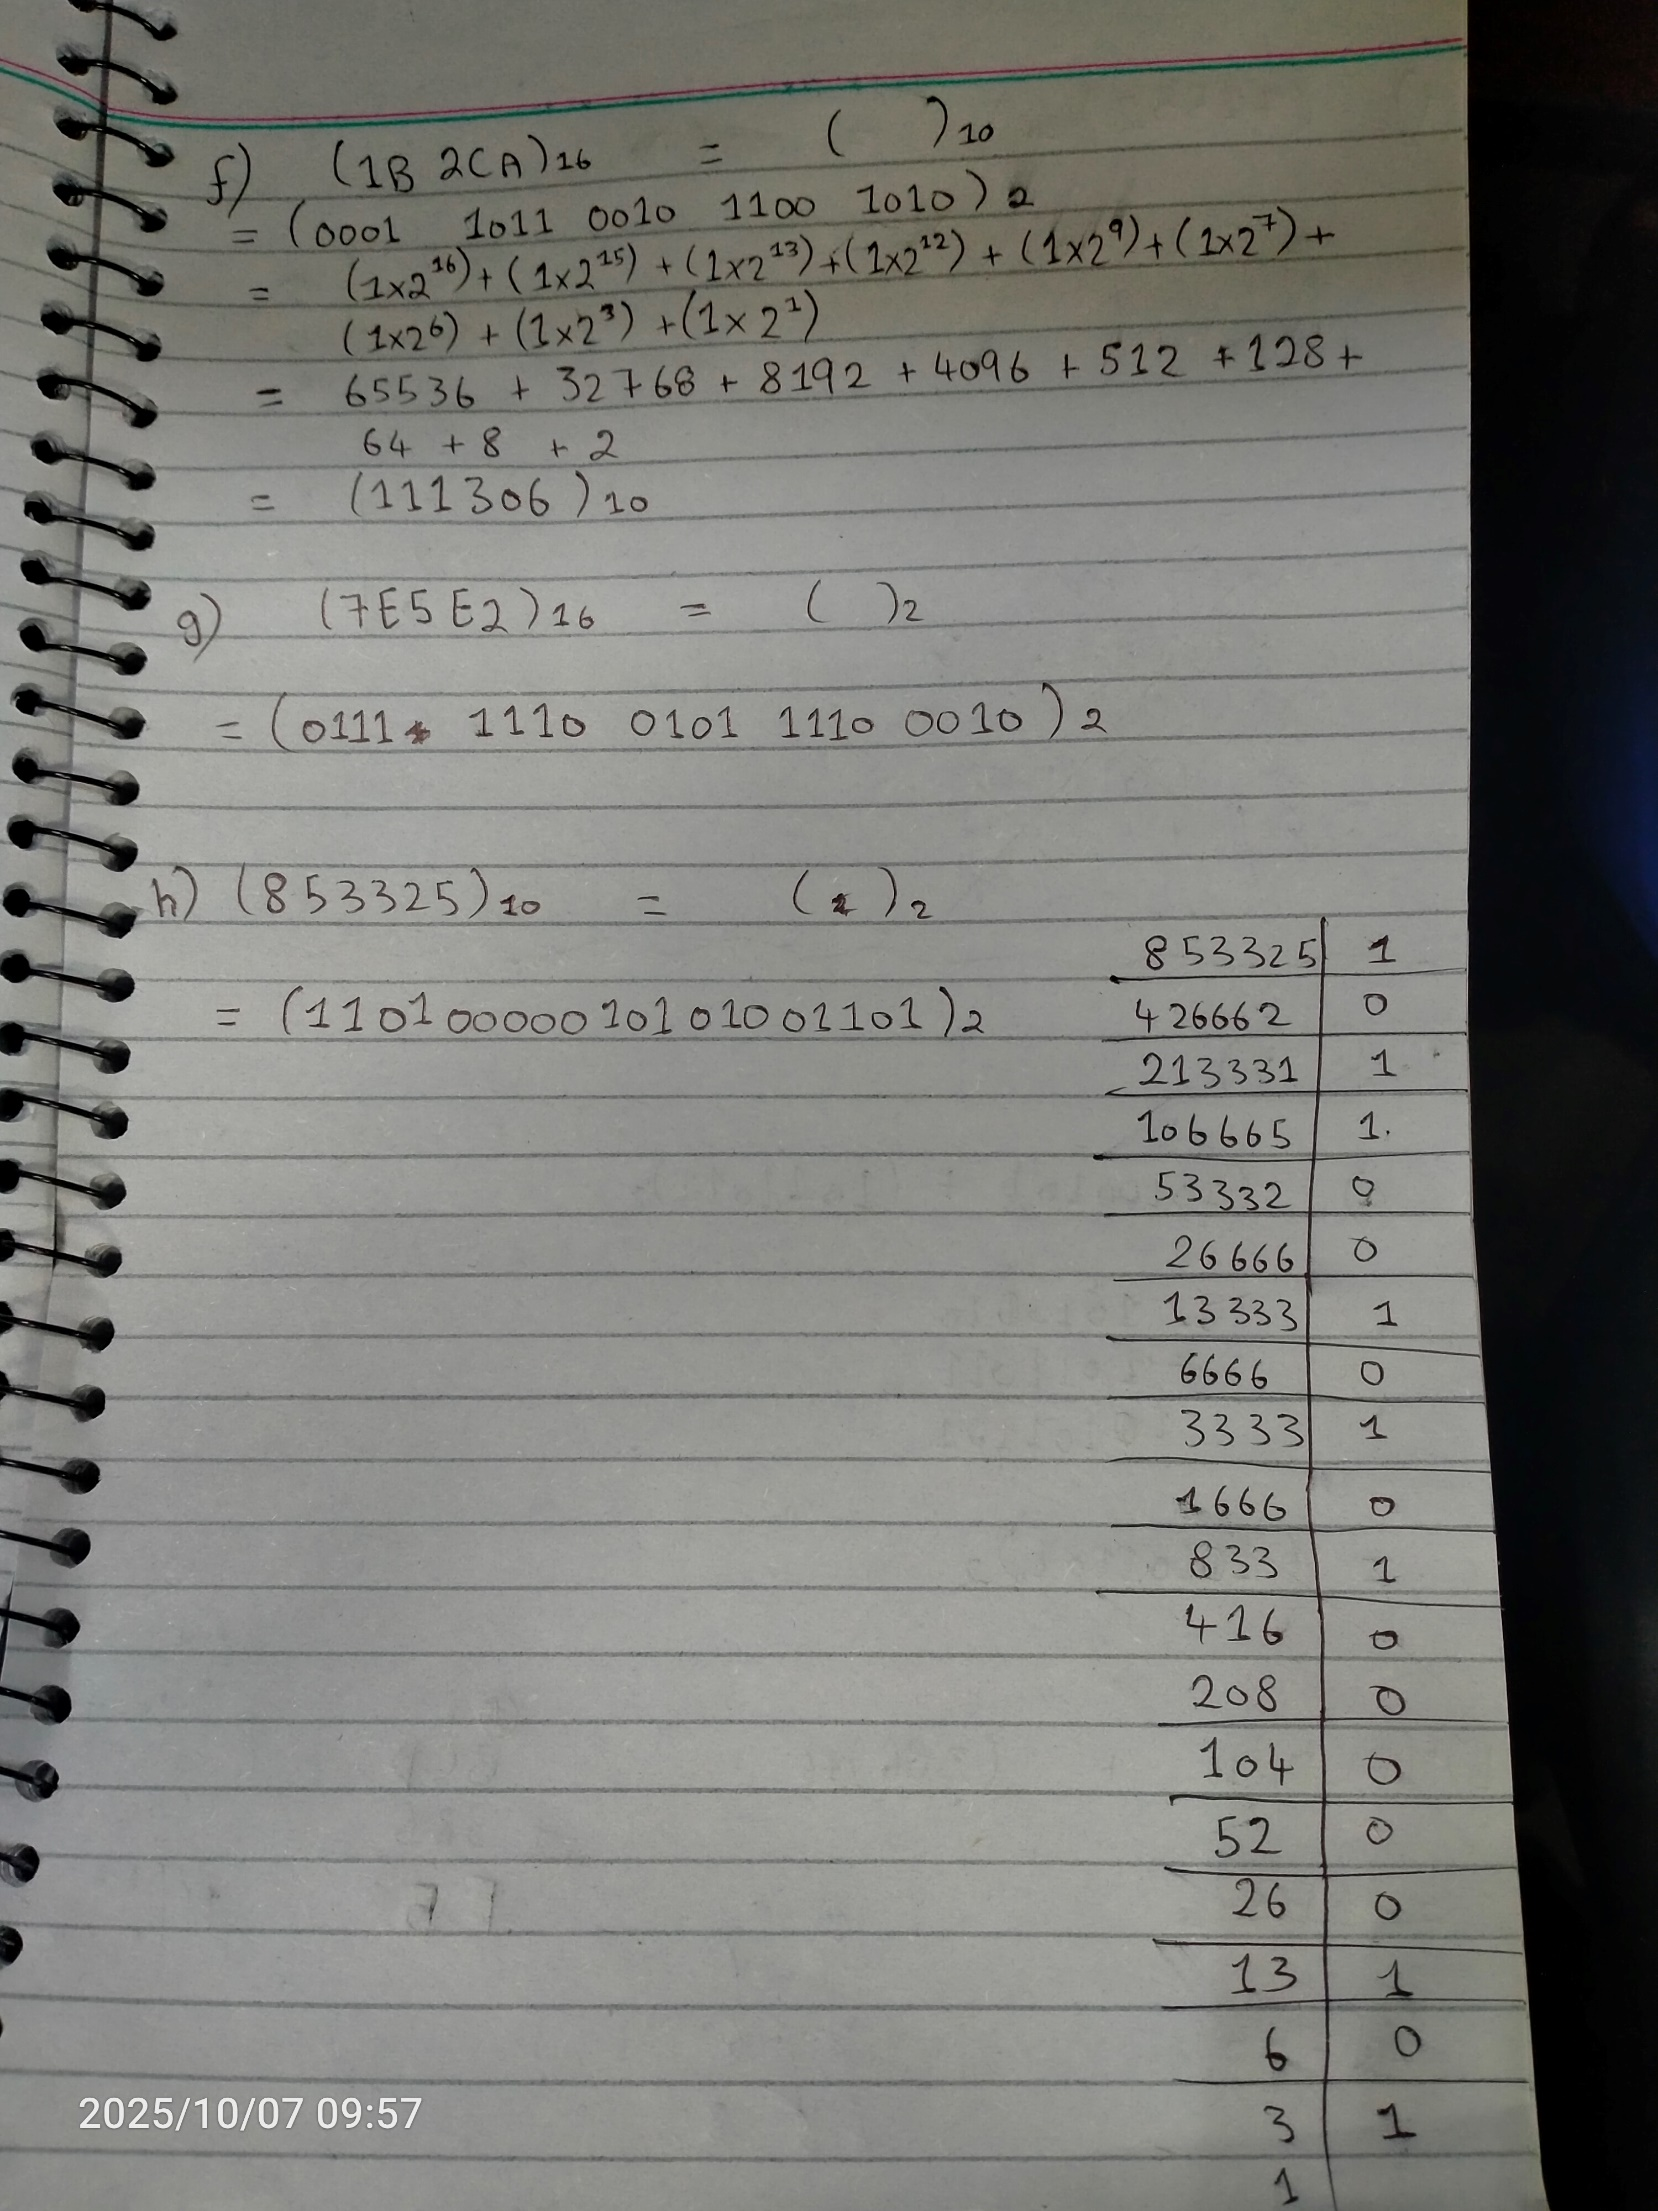 f) (1B 2CA)16 = ( )10
= (0001 1011 0010 1100 1010)2
= (1x2^16)+(1x2^15)+(1x2^13)+(1x2^12)+(1x2^9)+(1x2^7)+
(1x2^6)+(1x2^3)+(1x2^1)
= 65536 + 32768 + 8192 + 4096 + 512 + 128 +
64 + 8 + 2
= (111306)10
g) (7E5E2)16 = ( )2
= (0111 1110 0101 1110 0010)2
h) (853325)10 = ( )2
= (11010000010101001101)2
853325 1
426662 0
213331 1
106665 1.
53332 0
26666 0
13333 1
6666 0
3333 1
1666 0
833 1
416 0
208 0
104 0
52 0
26 0
13 1
6 0
3 1
1
2025/10/07 09:57